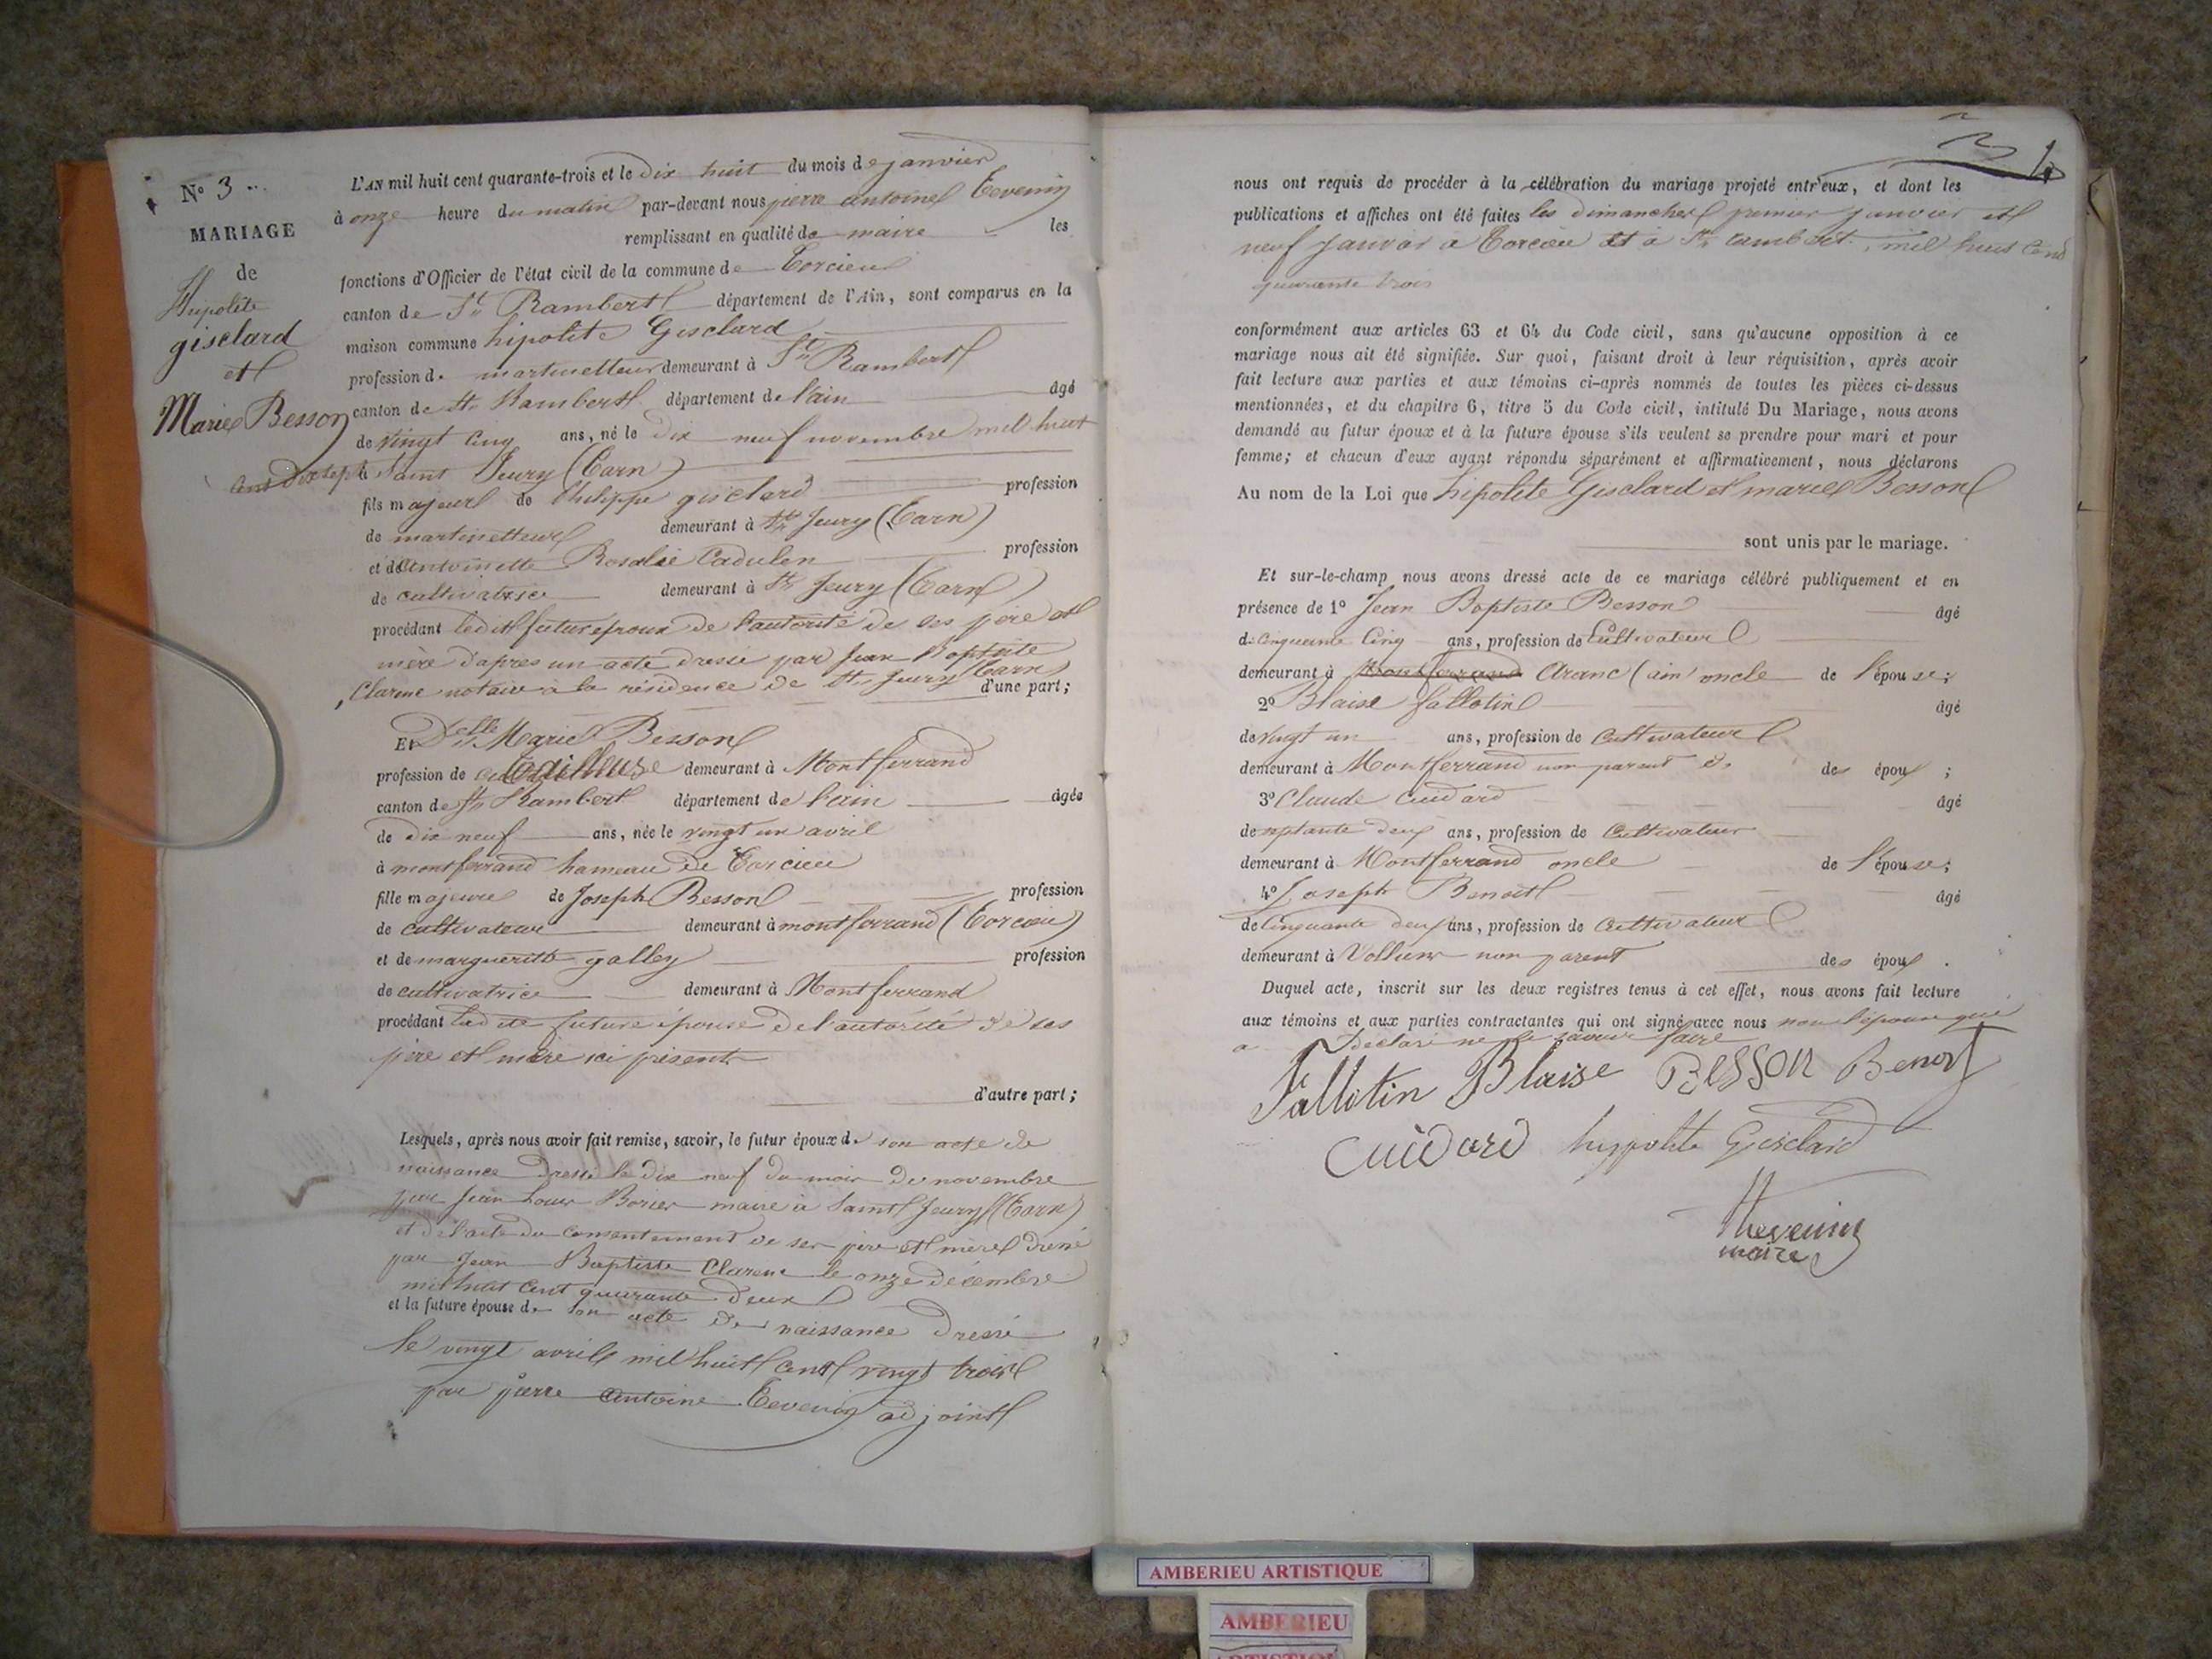 N° 3
MARIAGE
de
Hipolite
gisclard
et
Marie Besson
L'AN mil huit cent quarante-trois et le dix huit du mois de janvier
à onze heure du matin par-devant nous pierre antoine Tevenin
remplissant en qualité de maire les
fonctions d'Officier de l'état civil de la commune de Torcieu
canton de St Rambert département de l'Ain, sont comparus en la
maison commune hipolite Gisclard
profession de martinetteur demeurant à St Rambert
canton de St Rambert département de l'ain âgé
de vingt cinq ans, né le dix neuf novembre mil huit
cent dix sept à Saint Jeury (Tarn)
fils majeur de Philippe gisclard profession
de martinetteur demeurant à St Jeury (Tarn)
et de antoinette Rosalie Cadulen profession
de cultivatrice demeurant à St Jeury (Tarn)
procédant ledit futur époux de l'autorité de ses père et
mère d'apres un acte dressé par Jean Baptiste
Clarene notaire à la résidence de St Jeury (Tarn)
d'une part;
Et Delle Marie Besson
profession de tailleuse demeurant à Montferrand
canton de St Rambert département de l'ain âgée
de dix neuf ans, née le vingt un avril
à montferrand hameau de Torcieu
fille majeure de Joseph Besson profession
de cultivateur demeurant à montferrand (Torcieu)
et de margueritte galley profession
de cultivatrice demeurant à Montferrand
procédant ladite future épouse de l'autorité de ses
père et mère ici présent
d'autre part;
Lesquels, après nous avoir fait remise, savoir, le futur époux de son acte de
naissance dressé le dix neuf du mois de novembre
par Jean Louis Borier maire à Saint Jeury (Tarn)
et de l'acte du consentement de ses père et mère dressé
par Jean Baptiste Clarene le onze décembre
mil huit cent quarante deux
et la future épouse de son acte de naissance dressé
le vingt avril mil huit cent vingt trois
par pierre antoine Tevenin adjoint
3
nous ont requis de procéder à la célébration du mariage projeté entr'eux, et dont les
publications et affiches ont été faites les dimanches premier janvier et
neuf janvier à Torcieu et à St rambert, mil huit cent
quarante trois
conformément aux articles 63 et 64 du Code civil, sans qu'aucune opposition à ce
mariage nous ait été signifiée. Sur quoi, faisant droit à leur réquisition, après avoir
fait lecture aux parties et aux témoins ci-après nommés de toutes les pièces ci-dessus
mentionnées, et du chapitre 6, titre 5 du Code civil, intitulé Du Mariage, nous avons
demandé au futur époux et à la future épouse s'ils veulent se prendre pour mari et pour
femme; et chacun d'eux ayant répondu séparément et affirmativement, nous déclarons
Au nom de la Loi que hipolite Gisclard et marie Besson
sont unis par le mariage.
Et sur-le-champ nous avons dressé acte de ce mariage célébré publiquement et en
présence de 1° Jean Baptiste Besson âgé
de cinquante cinq ans, profession de Cultivateur
demeurant à Montferrand Aranc (ain) oncle de l'épouse;
2° Blaise fallotin âgé
de vingt un ans, profession de Cultivateur
demeurant à Montferrand non parent des époux;
3° Claude Cuidard âgé
de septante deux ans, profession de Cultivateur
demeurant à Montferrand oncle de l'épouse;
4° Joseph Benoit âgé
de cinquante deux ans, profession de Cultivateur
demeurant à Vollien non parent des époux.
Duquel acte, inscrit sur les deux registres tenus à cet effet, nous avons fait lecture
aux témoins et aux parties contractantes qui ont signé avec nous non l'épouse qui
a Declaré ne le savoir faire
Fallotin Blaise Besson Benoit
Cuidard hippolite Gisclard
Thevenin
maire
AMBERIEU ARTISTIQUE
AMBERIEU
ARTISTIQUE